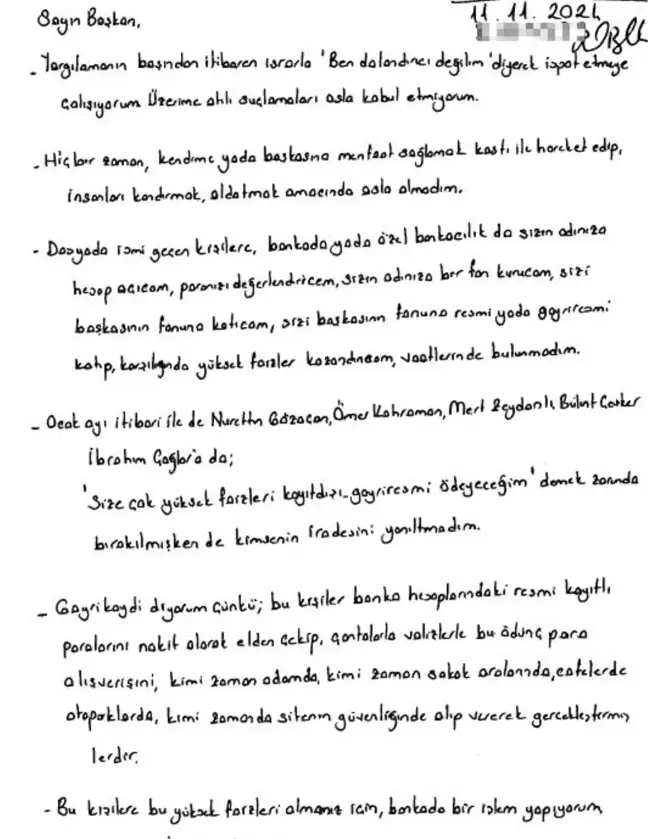 11.11.2024
Sayın Başkan,
- Yargılamanın başından itibaren ısrarla 'Ben dolandırıcı değilim' diyerek ispat etmeye
çalışıyorum Üzerime atılı suçlamaları asla kabul etmiyorum.
- Hiçbir zaman, kendime yada başkasına menfaat sağlamak kastı ile hareket edip,
insanları kandırmak, aldatmak amacında asla olmadım.
- Dosyada ismi geçen kişilere, bankada yada özel bankacılık da sizin adınıza
hesap açıcam, paranızı değerlendiricem, sizin adınıza bir fon kurucam, sizi
başkasının fonuna katıcam, sizi başkasının fonuna resmi yada gayriresmi
katıp, karşılığında yüksek faizler kazandırıcam, vaatlerinde bulunmadım.
- Ocak ayı itibari ile de Nurettin Gözaçan, Ömer Kahraman, Mert Zeydanlı, Bülent
İbrahim Çağlar'a da;
'Size çok yüksek faizleri kayıtdışı-gayriresmi ödeyeceğim' demek zorunda
bırakılmışken de kimsenin iradesini yanıltmadım.
- Gayrikaydi diyorum çünkü; bu kişiler banka hesaplarındaki resmi kayıtlı
paralarını nakit olarak elden çekip, çantalarla valizlerle bu ödünç para
alışverişini, kimi zaman odamda, kimi zaman sokak aralarında, cafelerde
otoparklarda, kimi zamanda sitenin güvenliğinde alıp vererek gerçekleştirmiş
lerdir.
- Bu kişilere bu yüksek faizleri almanız için, bankada bir işlem yapıyorum,